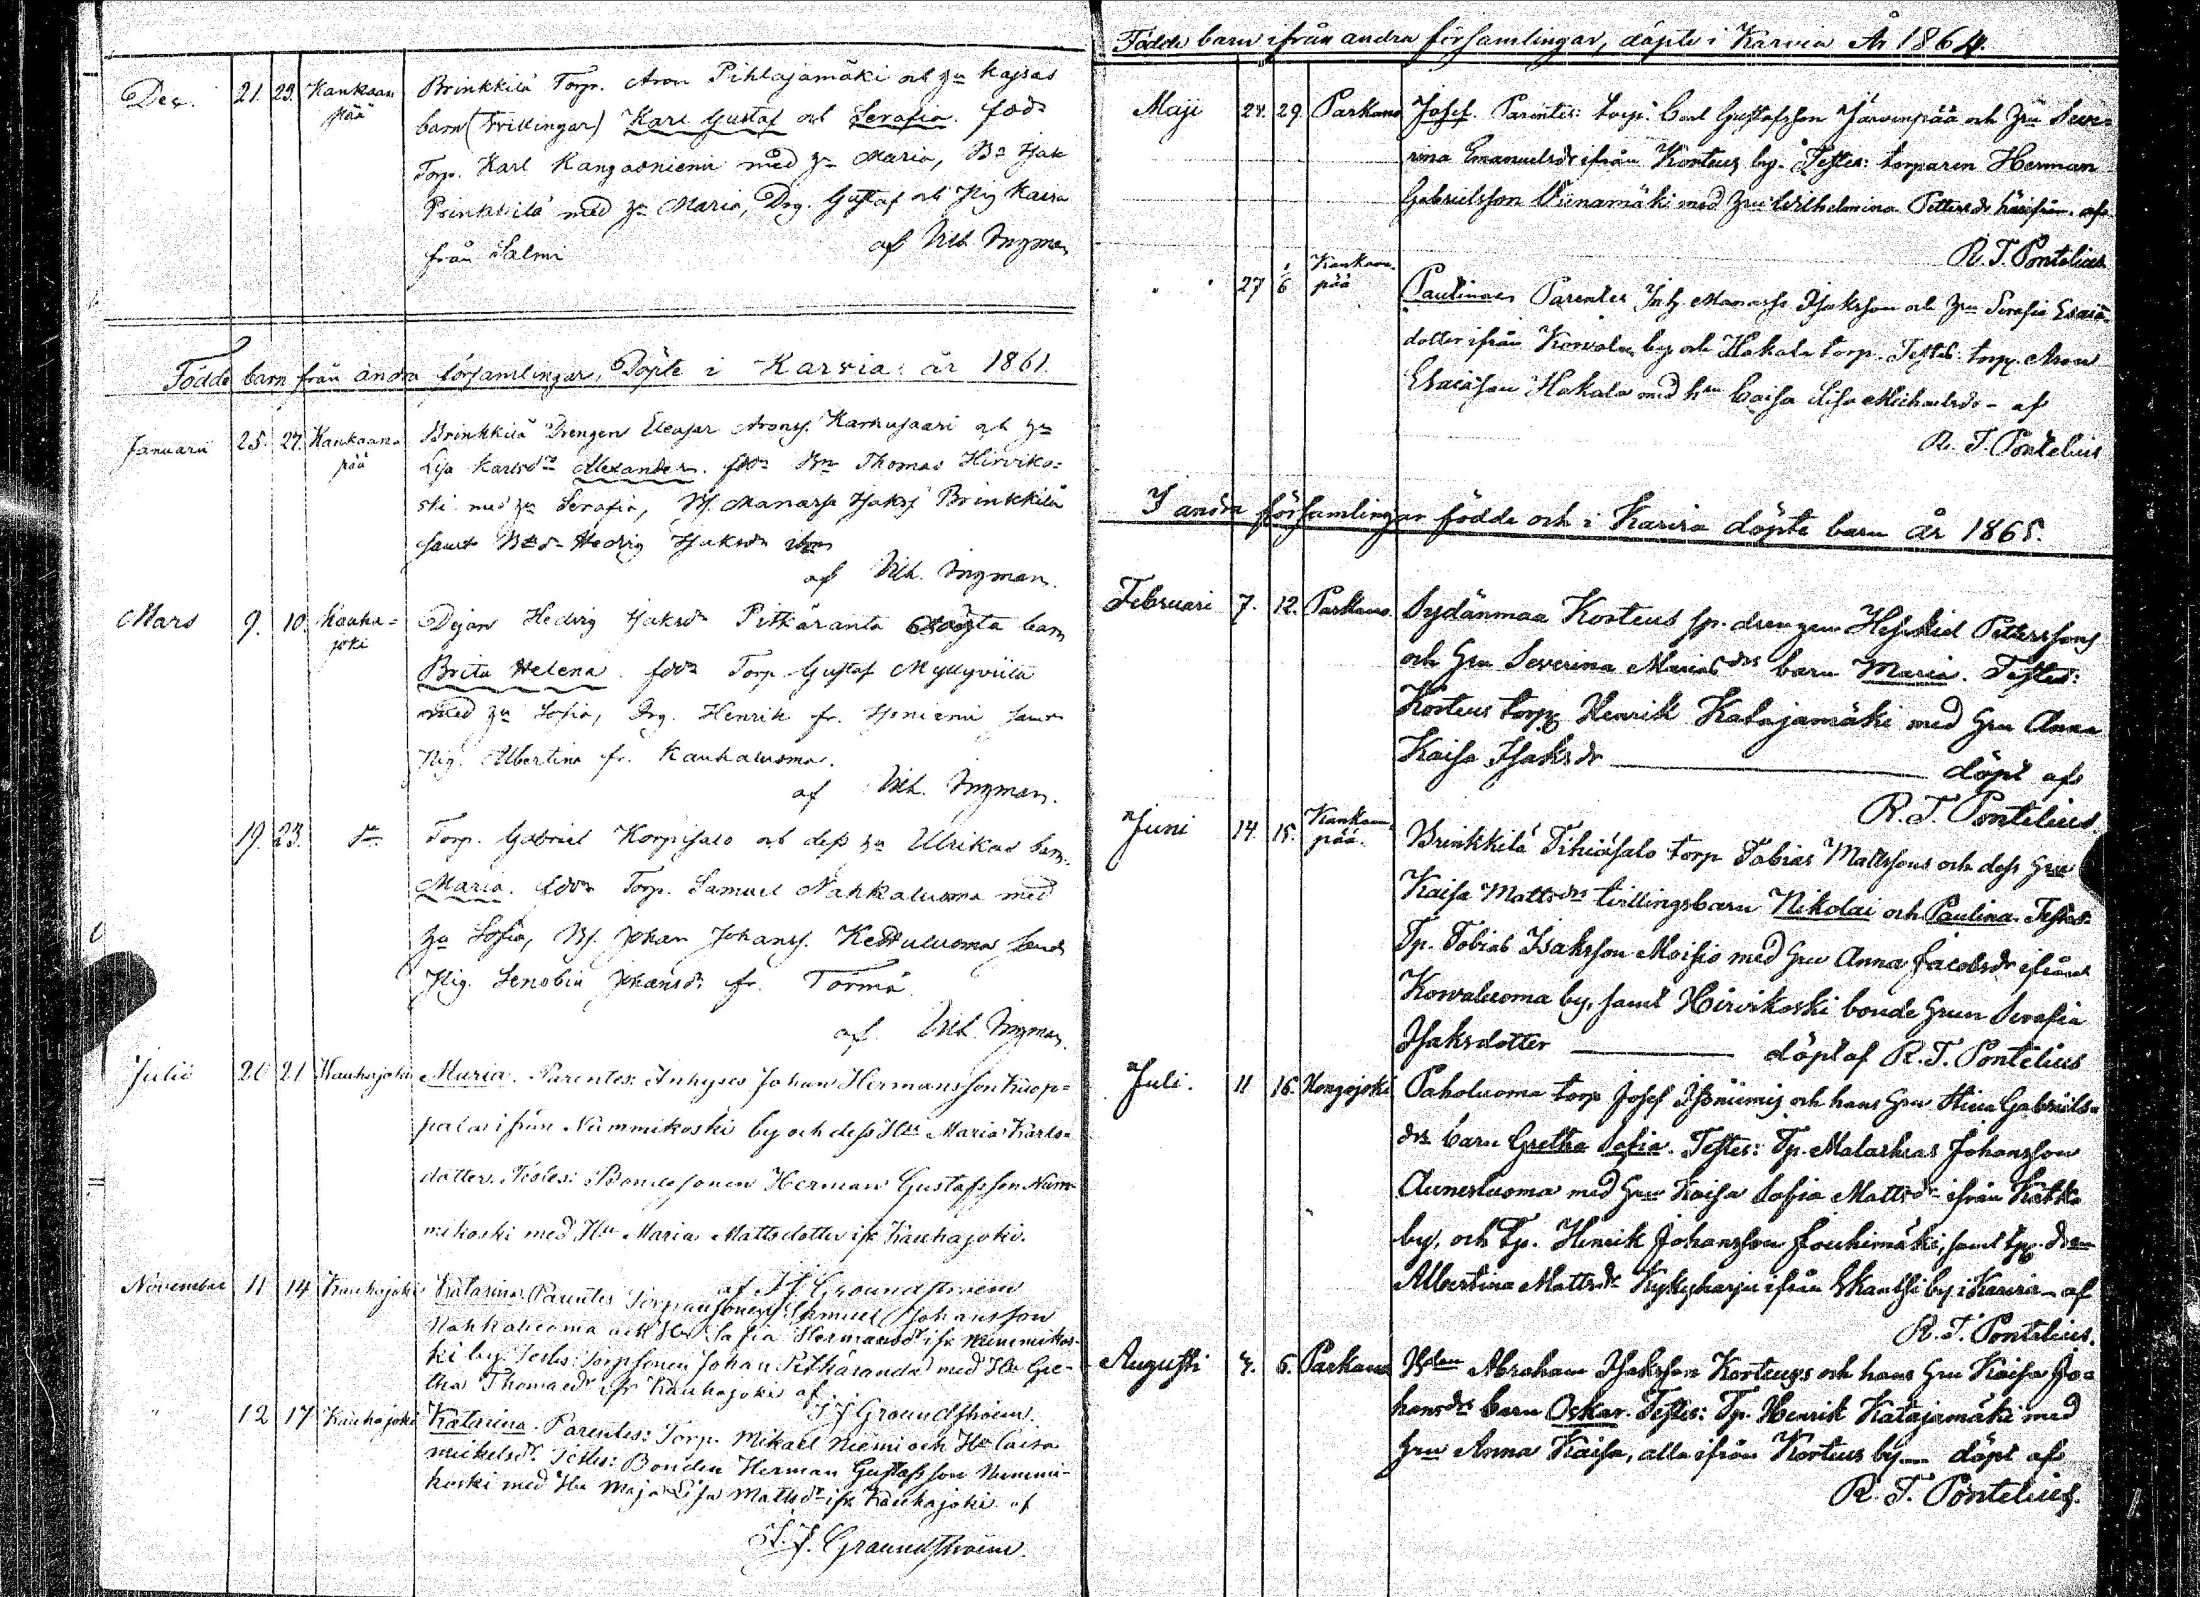 Dec. 21. 23. Kankaan Brinkkilä Torp. Aron Pihlajamäki och hu Kajsas
pää barn (Trillingar) Karl Gustaf och Serafia. fodr
Torp. Karl Kangasniemi med hu Maria, Bn Isak
Prinkkilä med hu Maria, Drg. Gustaf och Pig Kaisa
från Salmi af Vilh. Ingman
Födde barn från andra församlingar, Döpte i Karvia: år 1861.
Januari 25. 27. Kankaan Brinkkilä Drengen Eleasar Arons. Karhusaari och hu
pää Lisa Karlsdrs Alexander. fdr Bn Thomas Hirviko=
ski med hu Serafia, Bs. Manasse Isaks. Brinkkilä
samt Hedvig Isaksdr
af Vilh. Ingman.
Mars 9. 10. Kauha= Pigan Hedvig Isaksdr Pitkäranta oägta barn
joki Brita Helena. fdr Torp. Gustaf Myllyviita
med hu Sofia, Drg. Henrik fr. samt
Pig. Albertina fr. Kauhaluoma.
af Vilh. Ingman.
19. 23. Torp. Gabriel Korpisalo och dess hu Ulrikas barn
Maria. fdr Torp. Samuel Nahkaluoma med
hu Sofia, Bs. Johan Johans. Kettuluoma samt
Pig. Senobia Johansdr fr. Törmä.
af. Vilh. Ingman.
Julii 20 21 Kauhajoki Maria. Parentes: Inhyses Johan Hermansson Knop=
pala ifrån Nummikoski by och dess Hu Maria Karls=
dotter. Testes: Bondesonen Herman Gustafsson Num=
mikoski med Hu Maria Mattsdotter ifr Kauhajoki.
af J J Groundstroem
November 11 14 Kauhajoki Katarina. Parentes Torparsonen Samuel Johansson
Nahkaluoma och Hu Sofia Hermansdr ifr Nummikos=
ki by. Testes: Torpsonen Johan Pitkäranda med Hu Gre=
tha Thomasdr ifr Kauhajoki af
J J Groundstroem.
" 12 17 Kauhajoki Katarina. Parentes: Torp. Mikael Niemi och Hu Caisa
Mickelsdr. Testes: Bonden Herman Gustafsson Nummi=
koski med Hu Maja Lisa Mattsdr ifr Kauhajoki af
J. J. Groundstroem.
Födde barn ifrån andra församlingar, döpte i Karvia År 1864.
Maji 24. 29. Parkano Josef. Parentes: torp. Carl Gustafsson Järvenpää och hru Seve=
rina Emanuelsdr ifrån Korteus by. Testes: torparen Herman
Gabrielsson Viinamäki med hru Wilhelmina Pettersdr härifrån. af
R. T. Pontelius
" " 27 1/6 Kankaan- Paulina. Parentes Inh. Manasse Isaksson och hru Serafia Esaiæ
pää dotter ifrån Kovala by och Hakala torp. Testes: torp. Aron
Esaiæson Hakala med hru Caisa Lisa Michaelsdr - af
R. T. Pontelius
I andra församlingar födda och i Karvia döpta barn år 1865.
Februari 7. 12. Parkano. Sydänmaa Korteus sp. drengen Hesekiel Pettersons
och hru Severina Mariasdrs barn Maria. Testes:
Korteus torp. Henrik Katajamäki med hru Anna
Kaisa Isaksdr döpt af
R. T. Pontelius
Juni 14. 15. Kankaan Brinkkilä Tihiäsalo torp Tobias Mattssons och dess hru
pää. Kaisa Mattsdrs tvillingsbarn Nikolai och Paulina. Testes:
Tp. Tobias Isaksson Moisio med hru Anna Jacobsdr ifrån
Kovaluoma by, samt Hirvikoski bonde hrun Serafia
Isaksdotter döpt af R. T. Pontelius
Juli. 11 16. Hongojoki Paholuoma torp Josef och hans hru Stina Gabriels=
drs barn Gretha Sofia. Testes: Tp. Malachias Johansson
Aunesluoma med hru Kaisa Sofia Mattsdr ifrån
by, och Tp. Henrik Johansson Jouhimäki, samt tp. drn
Albertina Mattsdr Kykyharju ifrån Skantsi by i Karvia - af
R. T. Pontelius.
Augusti 4. 6. Parkano Bden Abraham Isaksson Korteus och hans hru Kaisa Jo=
hansdrs barn Oskar. Testes: Tp. Henrik Katajamäki med
hru Anna Kaisa, alla ifrån Korteus by döpt af
R. T. Pontelius.